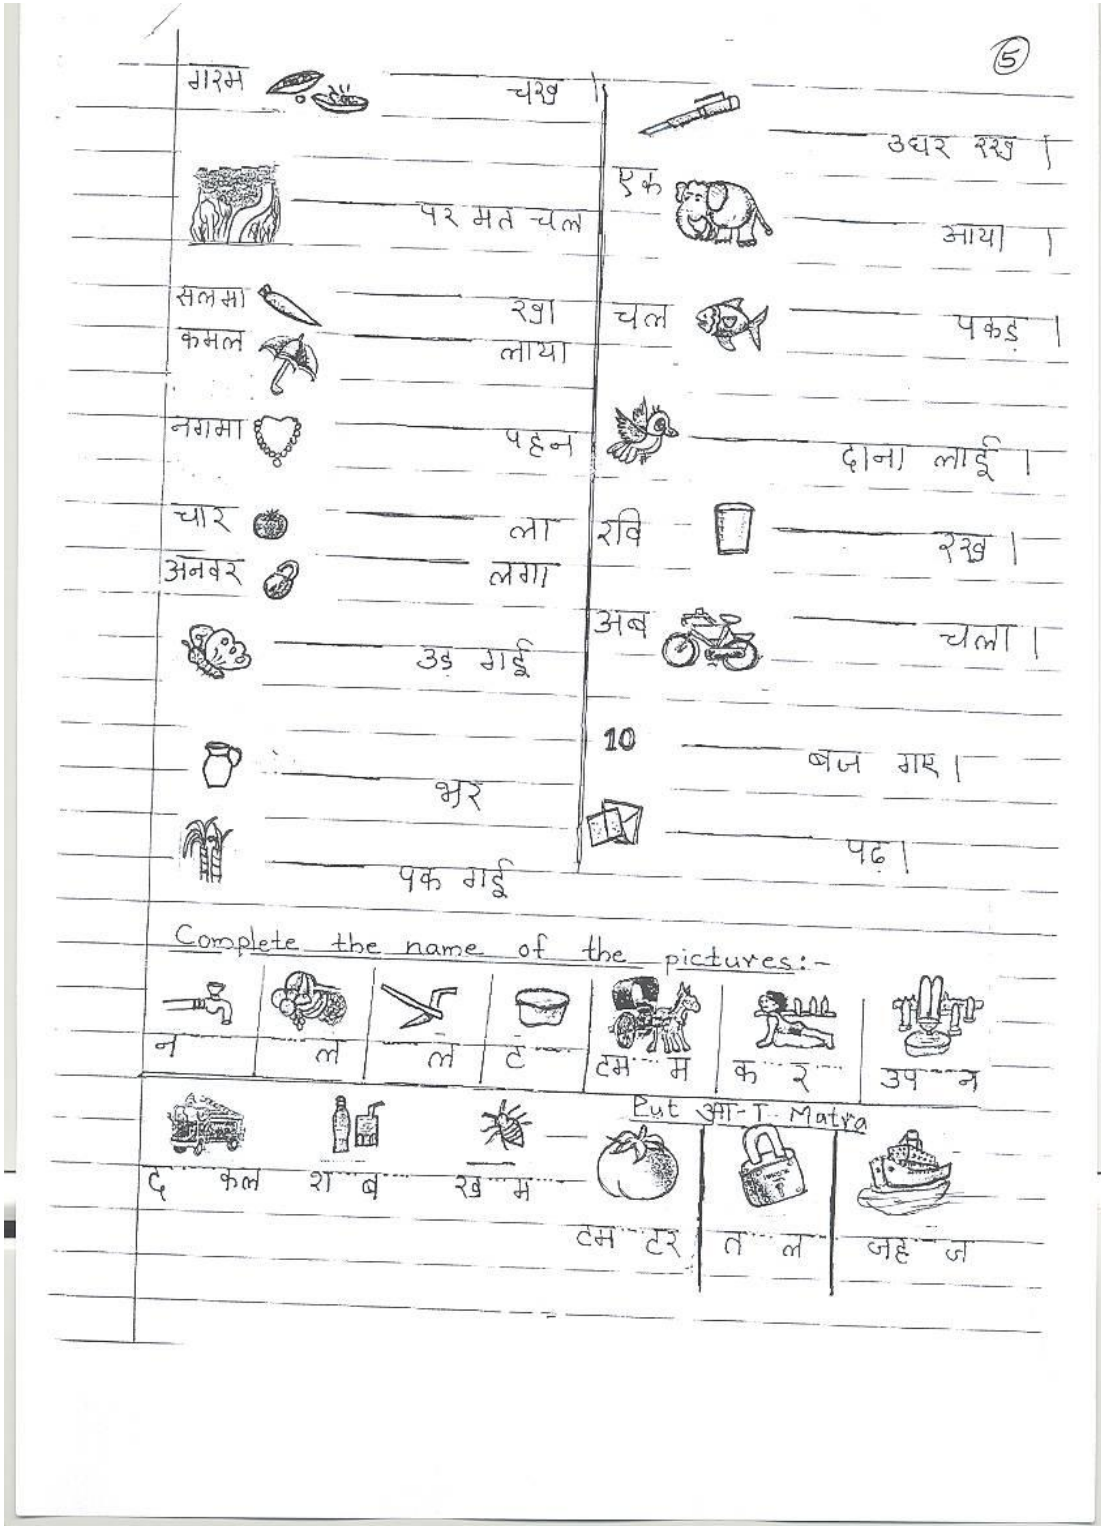 5
गरम ________ चख ।
________ पर मत चल
सलमा ________ खा
कमल ________ लाया
नगमा ________ पहन
चार ________ ला
अनवर ________ लगा
________ उड़ गई
________ भर
________ पक गई
________ उधर रख ।
एक ________ आया ।
चल ________ पकड़ ।
________ दाना लाई ।
रवि ________ रख ।
अब ________ चला ।
10 ________ बज गए ।
________ पढ़ ।
Complete the name of the pictures:-
न---- ----ल ----ल ट---- टम----म क----र---- उप----न
द----कल श----ब---- ख----म----
Put आ-ा Matra
टम----टर त----ल जह----ज